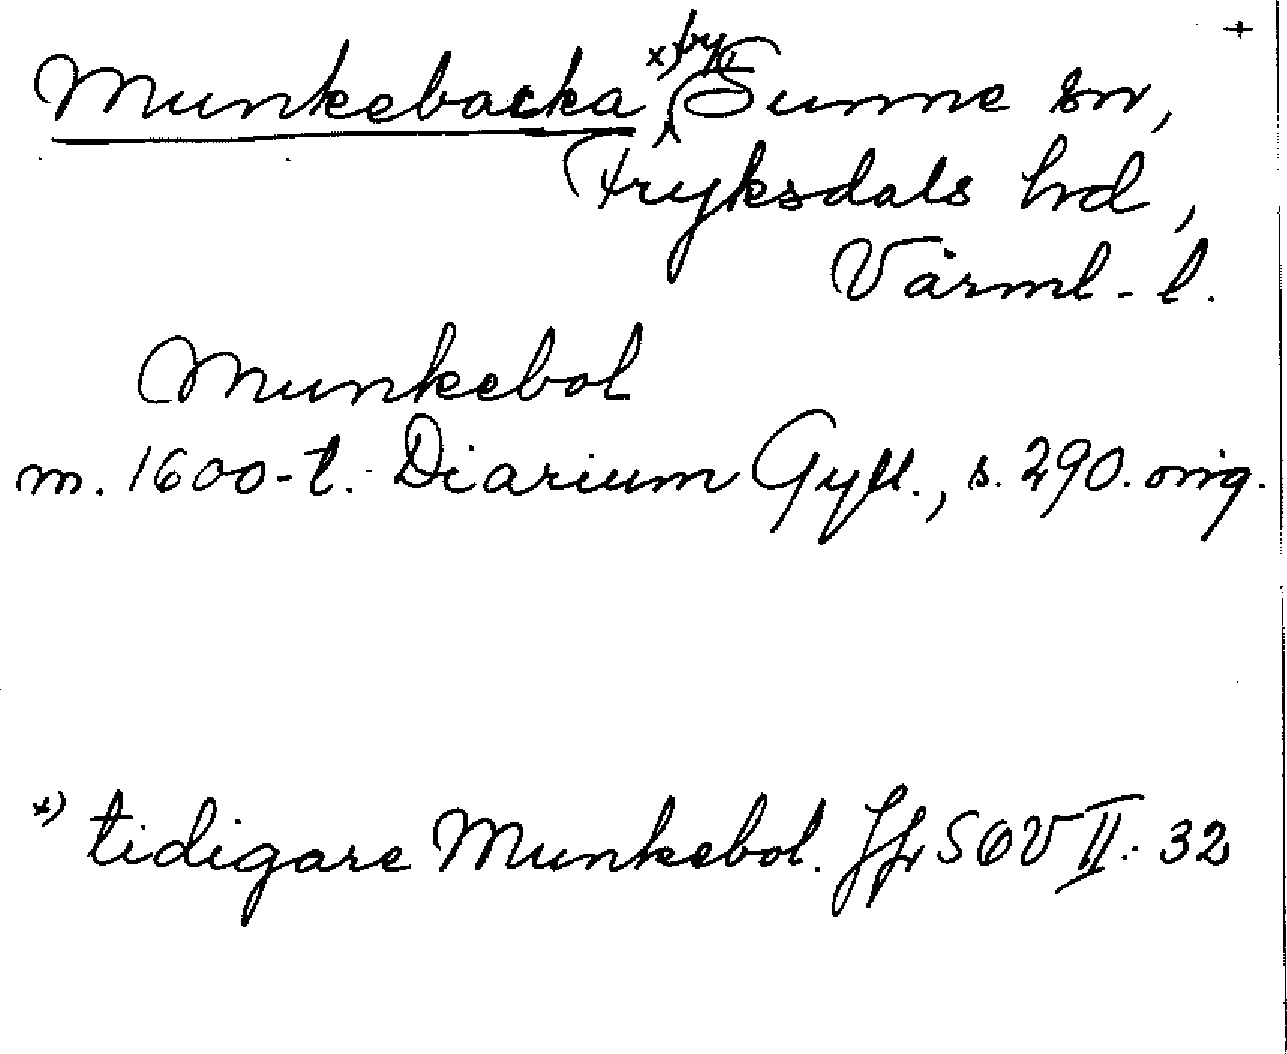 +
Munkebacka x) by, Sunne sn,
Fryksdals hd,
Värml. l.
Munkebol
m. 1600-t. Diarium Gyll., s. 290. orig.
x) tidigare Munkebol. Jfr SOV II: 32